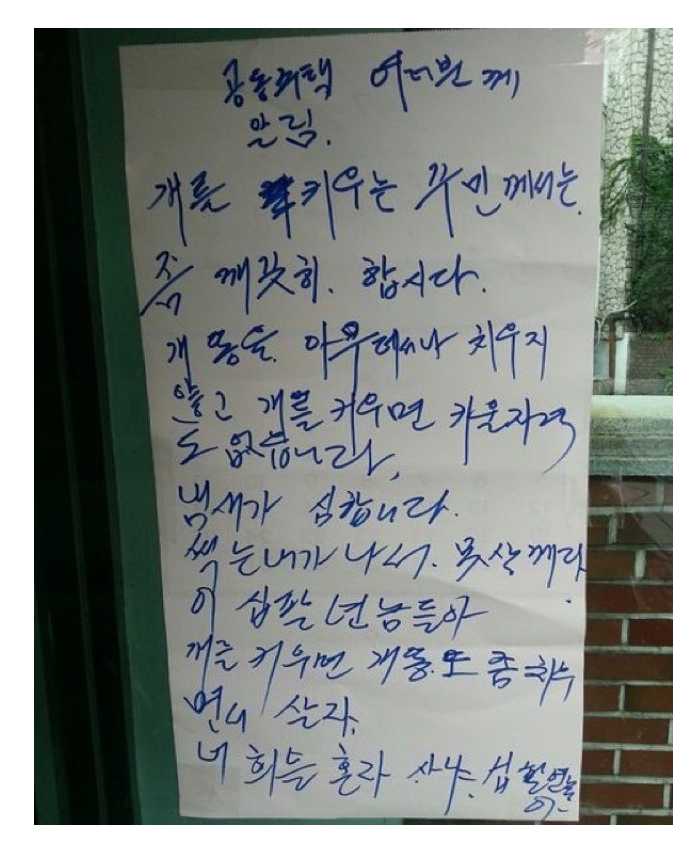 공동주택 여러분께
알림.
개를 키우는 주민께서는.
좀 깨끗히. 합시다.
개똥을. 아무데서나 치우지
않고 개를 키우면 키울자격
도 없습니다.
냄새가 심합니다.
썩는내가 나서. 못살께다
이 십팔 년놈들아
개를 키우면 개똥도 좀 치우
면서 살자.
너희들 혼자 사냐. 십팔년놈
아-